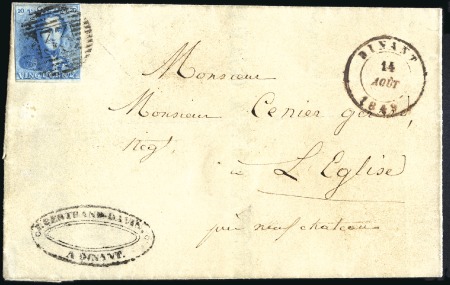 20
VINGT CENT
DINANT
14
AOUT
1849
Monsieur
Monsieur Cenier
Negt.
à L'Eglise
près neufchateau
BERTRAND-DAVIN
A DINANT.